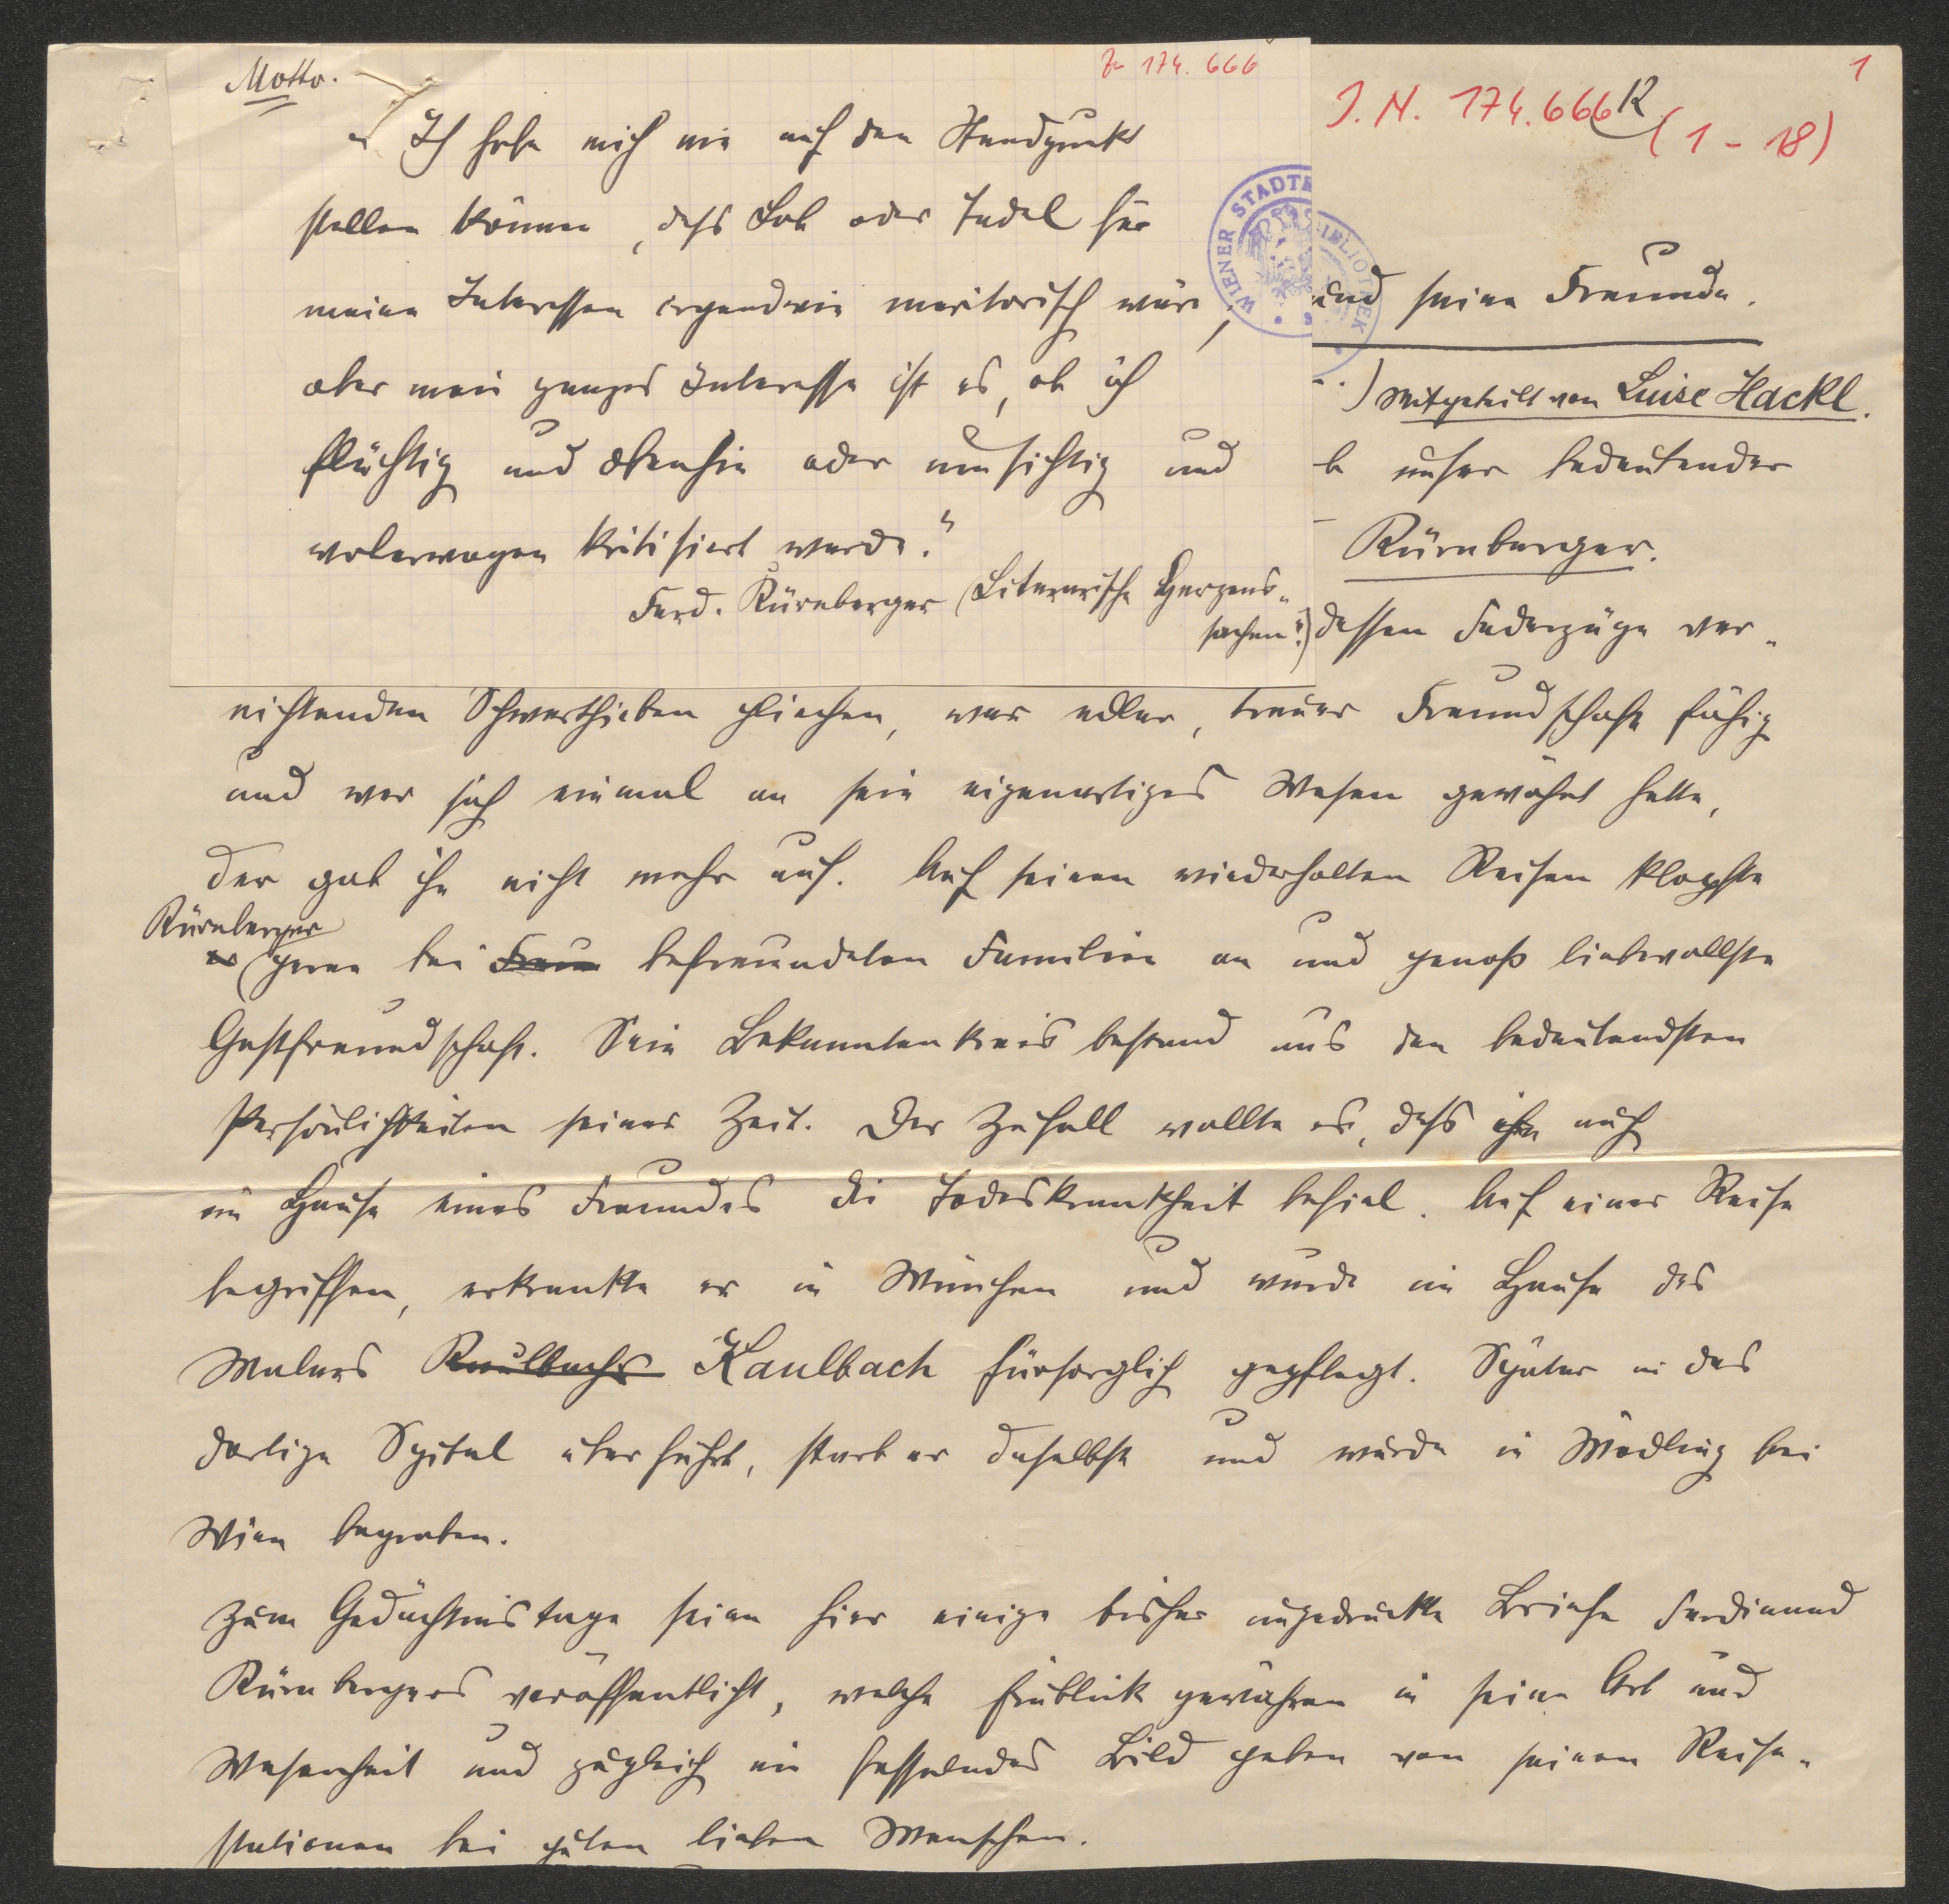 Motto.
Zu 174.666
„Ich habe mich nie auf den Standpunkt
stellen können, dass Lob oder Tadel für
meine Interessen irgendwie meritorisch wäre,
aber mein ganzes Interesse ist es, ob ich
flüchtig und obenhin oder umsichtig und
wolerwogen kritisiert werde."
Ferd. Kürnberger (Literarische Herzens-
sachen".)
1
J.N. 174.666 K
(1-18)
WIENER STADTBIBLIOTHEK
und seine Freunde.
..) Mitgeteilt von Luise Hackl.
b unser bedeutender
Kürnberger.
dessen Federzüge ver-
nichtenden Schwerthieben glichen, war edler, treuer Freundschaft fähig
und wer sich einmal an sein eigenartiges Wesen gewöhnt hatte,
der gab ihn nicht mehr auf. Auf seinen wiederholten Reisen klopfte
Kürnberger
er gerne bei Freun befreundeten Familien an und genoß liebevollste
Gastfreundschaft. Sein Bekanntenkreis bestand aus den bedeutendsten
Persönlichkeiten seiner Zeit. Der Zufall wollte es, dass ihn auch
im Hause eines Freundes die Todeskrankheit befiel. Auf einer Reise
begriffen, erkrankte er in München und wurde im Hause des
Malers Kaulbachs Kaulbach fürsorglich gepflegt. Später in das
dortige Spital überführt, starb er daselbst und wurde in Mödling bei
Wien begraben.
Zum Gedächtnistage seien hier einige bisher ungedruckte Briefe Ferdinand
Kürnbergers veröffentlicht, welche Einblick gewähren in seine Art und
Wesenheit und zugleich ein fesselndes Bild geben von seinen Reise-
stationen bei guten lieben Menschen.